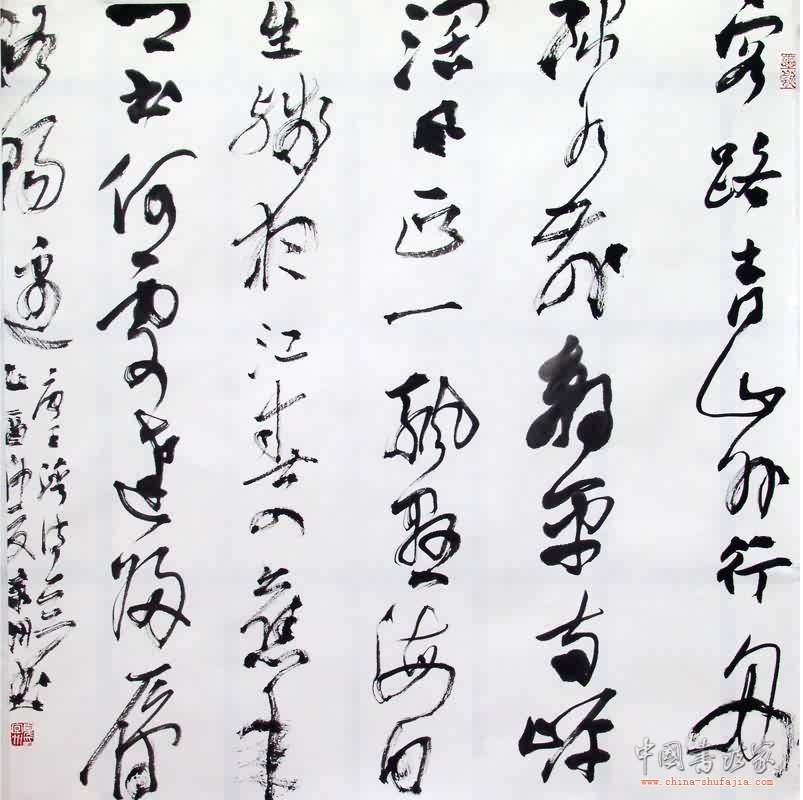 客路青山外行舟
綠水前潮平兩岸
闊風正一帆懸海日
生殘夜江春入舊年
鄉書何處達歸雁
洛陽邊
唐王灣詩
乙酉仲夏
中國書法家
www.china-shufajia.com